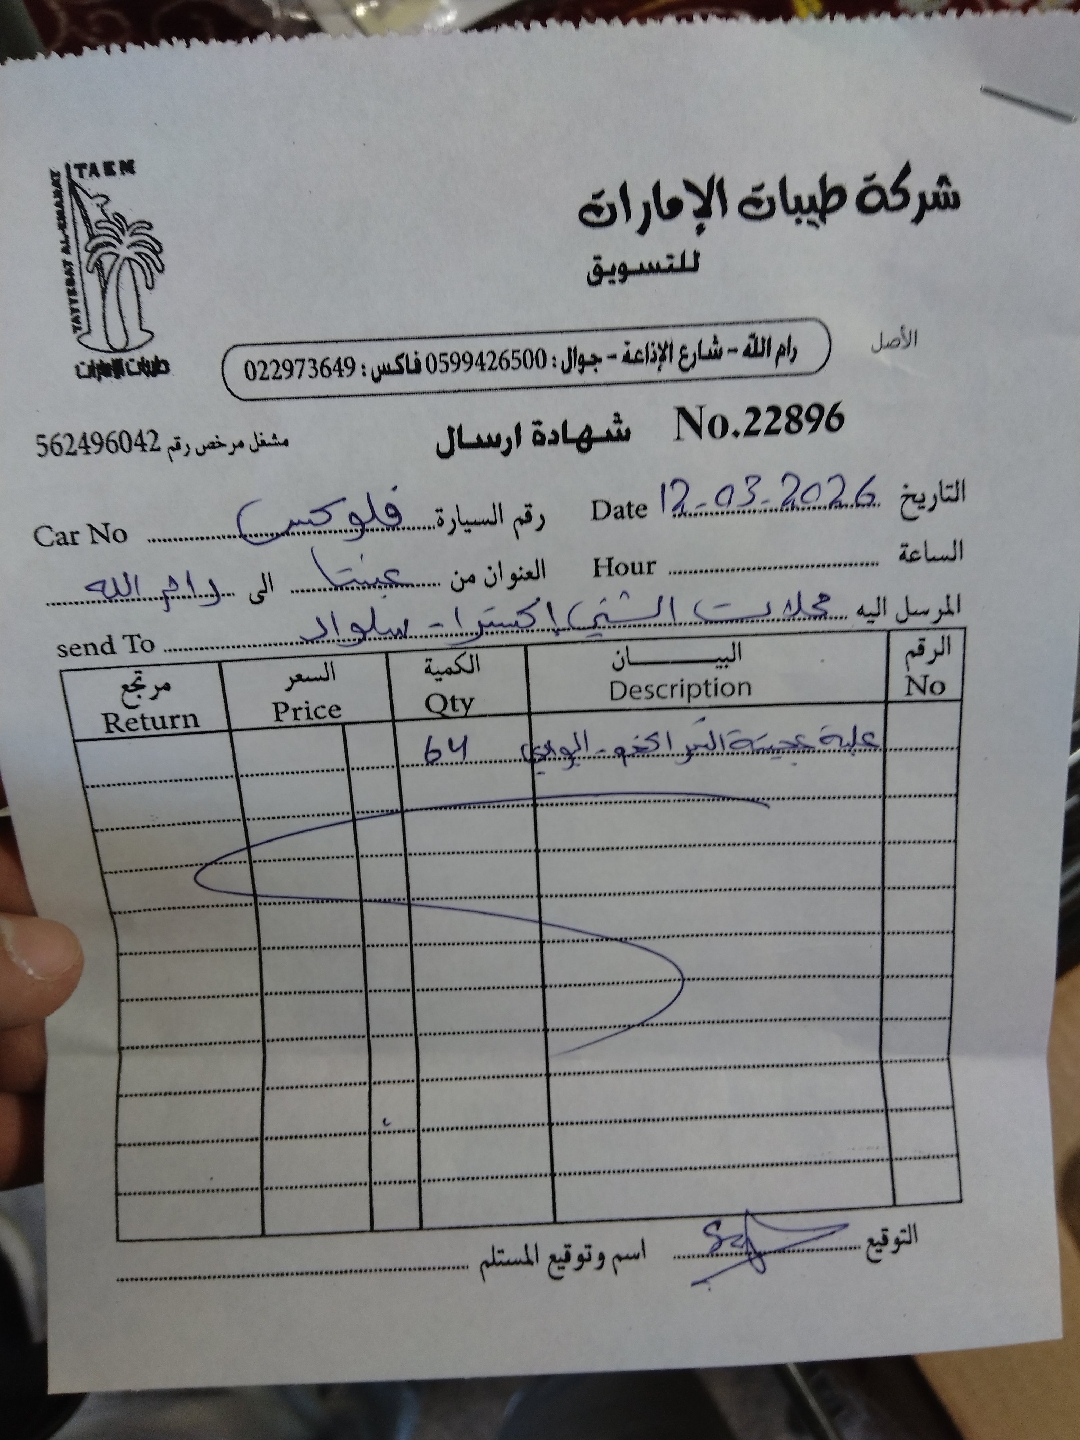 TAEM
TAYYEBAT AL-EMARAT
طيبات الإمارات
شركة طيبات الإمارات
للتسويق
رام الله - شارع الإذاعة - جوال : 0599426500 فاكس : 022973649
الأصل
شهادة ارسال No.22896
مشغل مرخص رقم 562496042
التاريخ 12-03-2026 Date
رقم السيارة فلوكس Car No
الساعة Hour
العنوان من عنبتا الى رام الله
المرسل اليه محلات الشني إكسترا - سلواد send To
الرقم البيــان الكمية السعر مرتجع
No Description Qty Price Return
علبة عجينة التمر الخم - 64
التوقيع
اسم وتوقيع المستلم